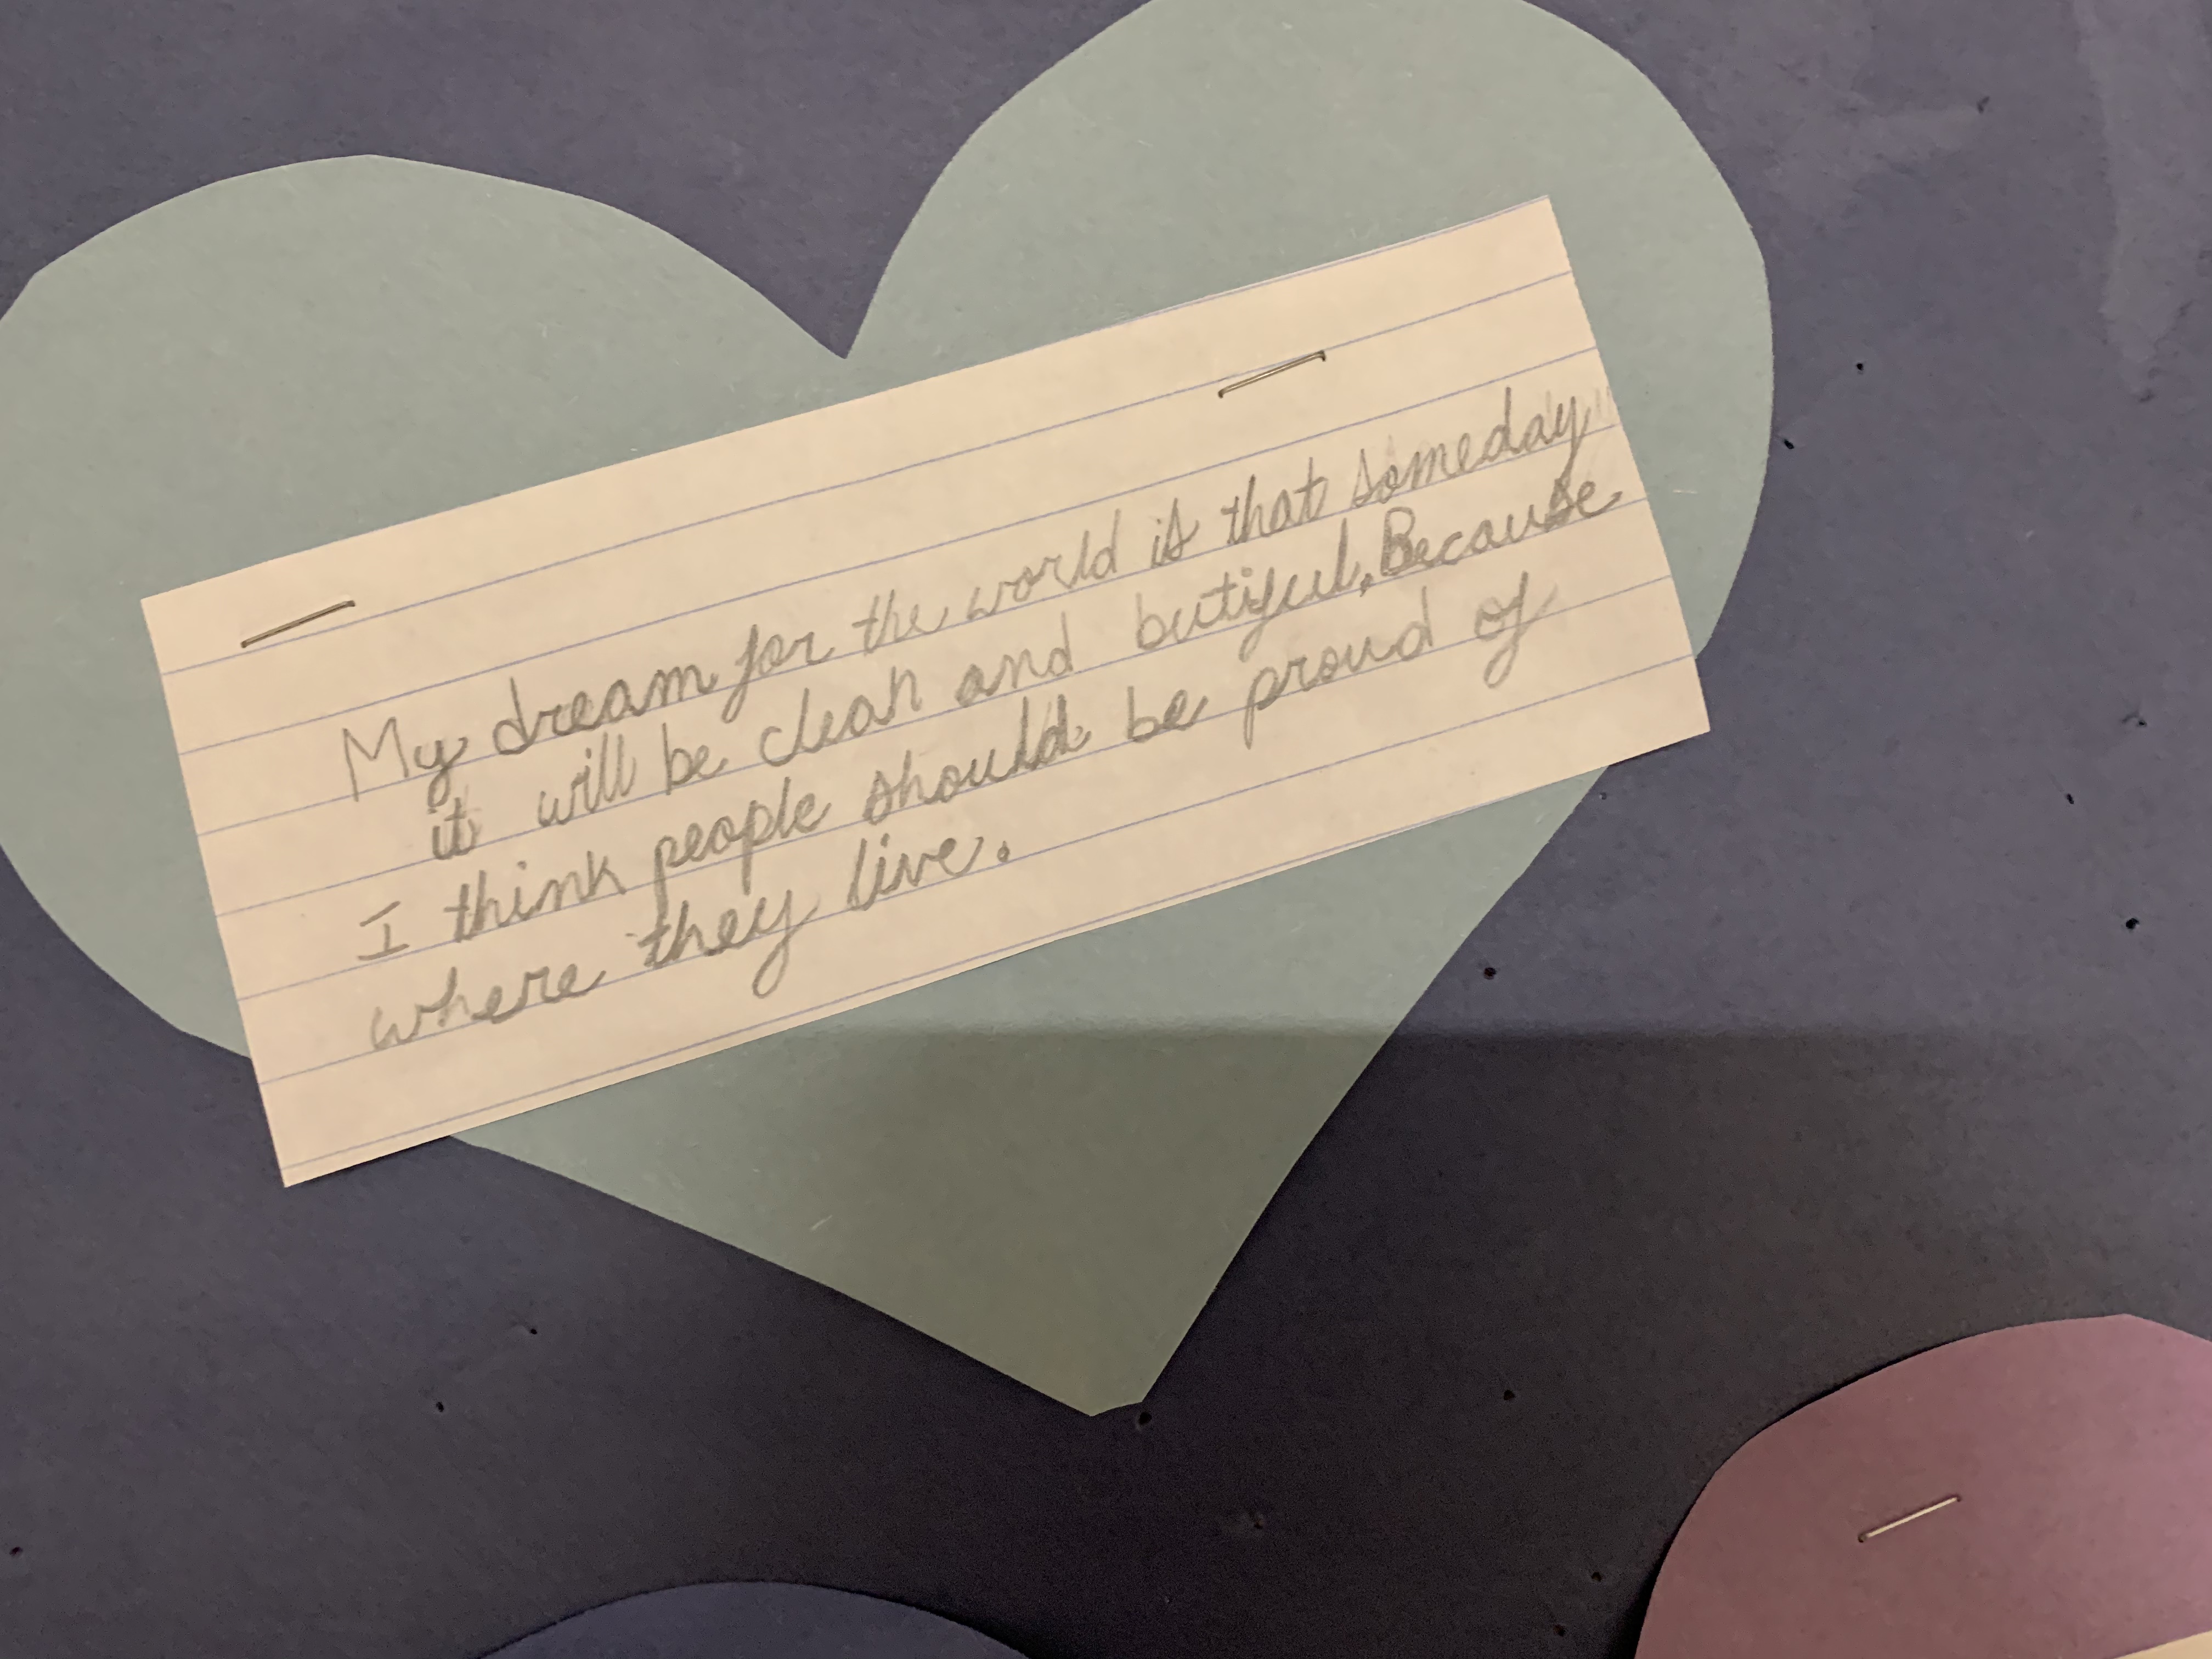 My dream for the world is that someday
it will be clean and butiful. Because
I think people should be proud of
where they live.